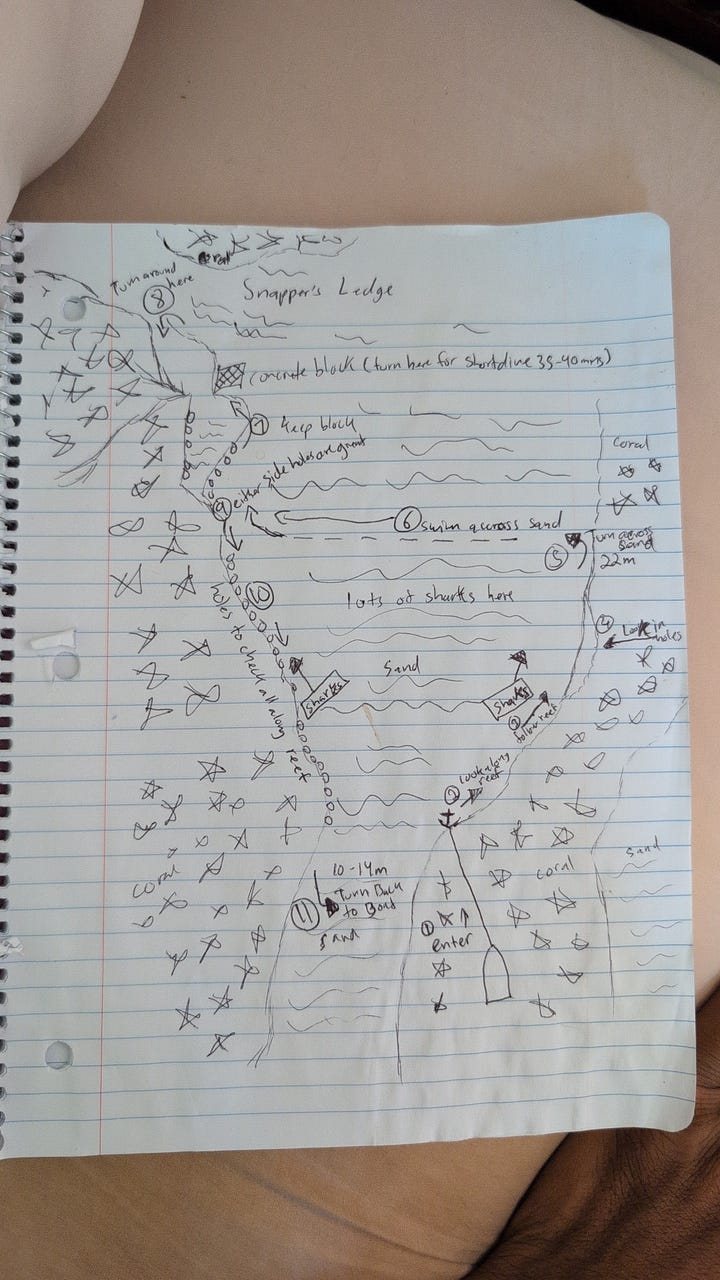 coral
Turn around
here
8
Snapper's Ledge
concrete block (turn here for short dive 35-40mns)
7 Keep block
either side holes are great
9
Coral
6 swim accross sand
Turn across
Sand
22m
5
10
holes to check all along reef
lots of sharks here
4 Look in
holes
Sand
sharks
sharks
3
follow reef
2 Look along
reef
coral
10-14m
Turn Back
to Boat
11
sand
1
enter
coral
sand